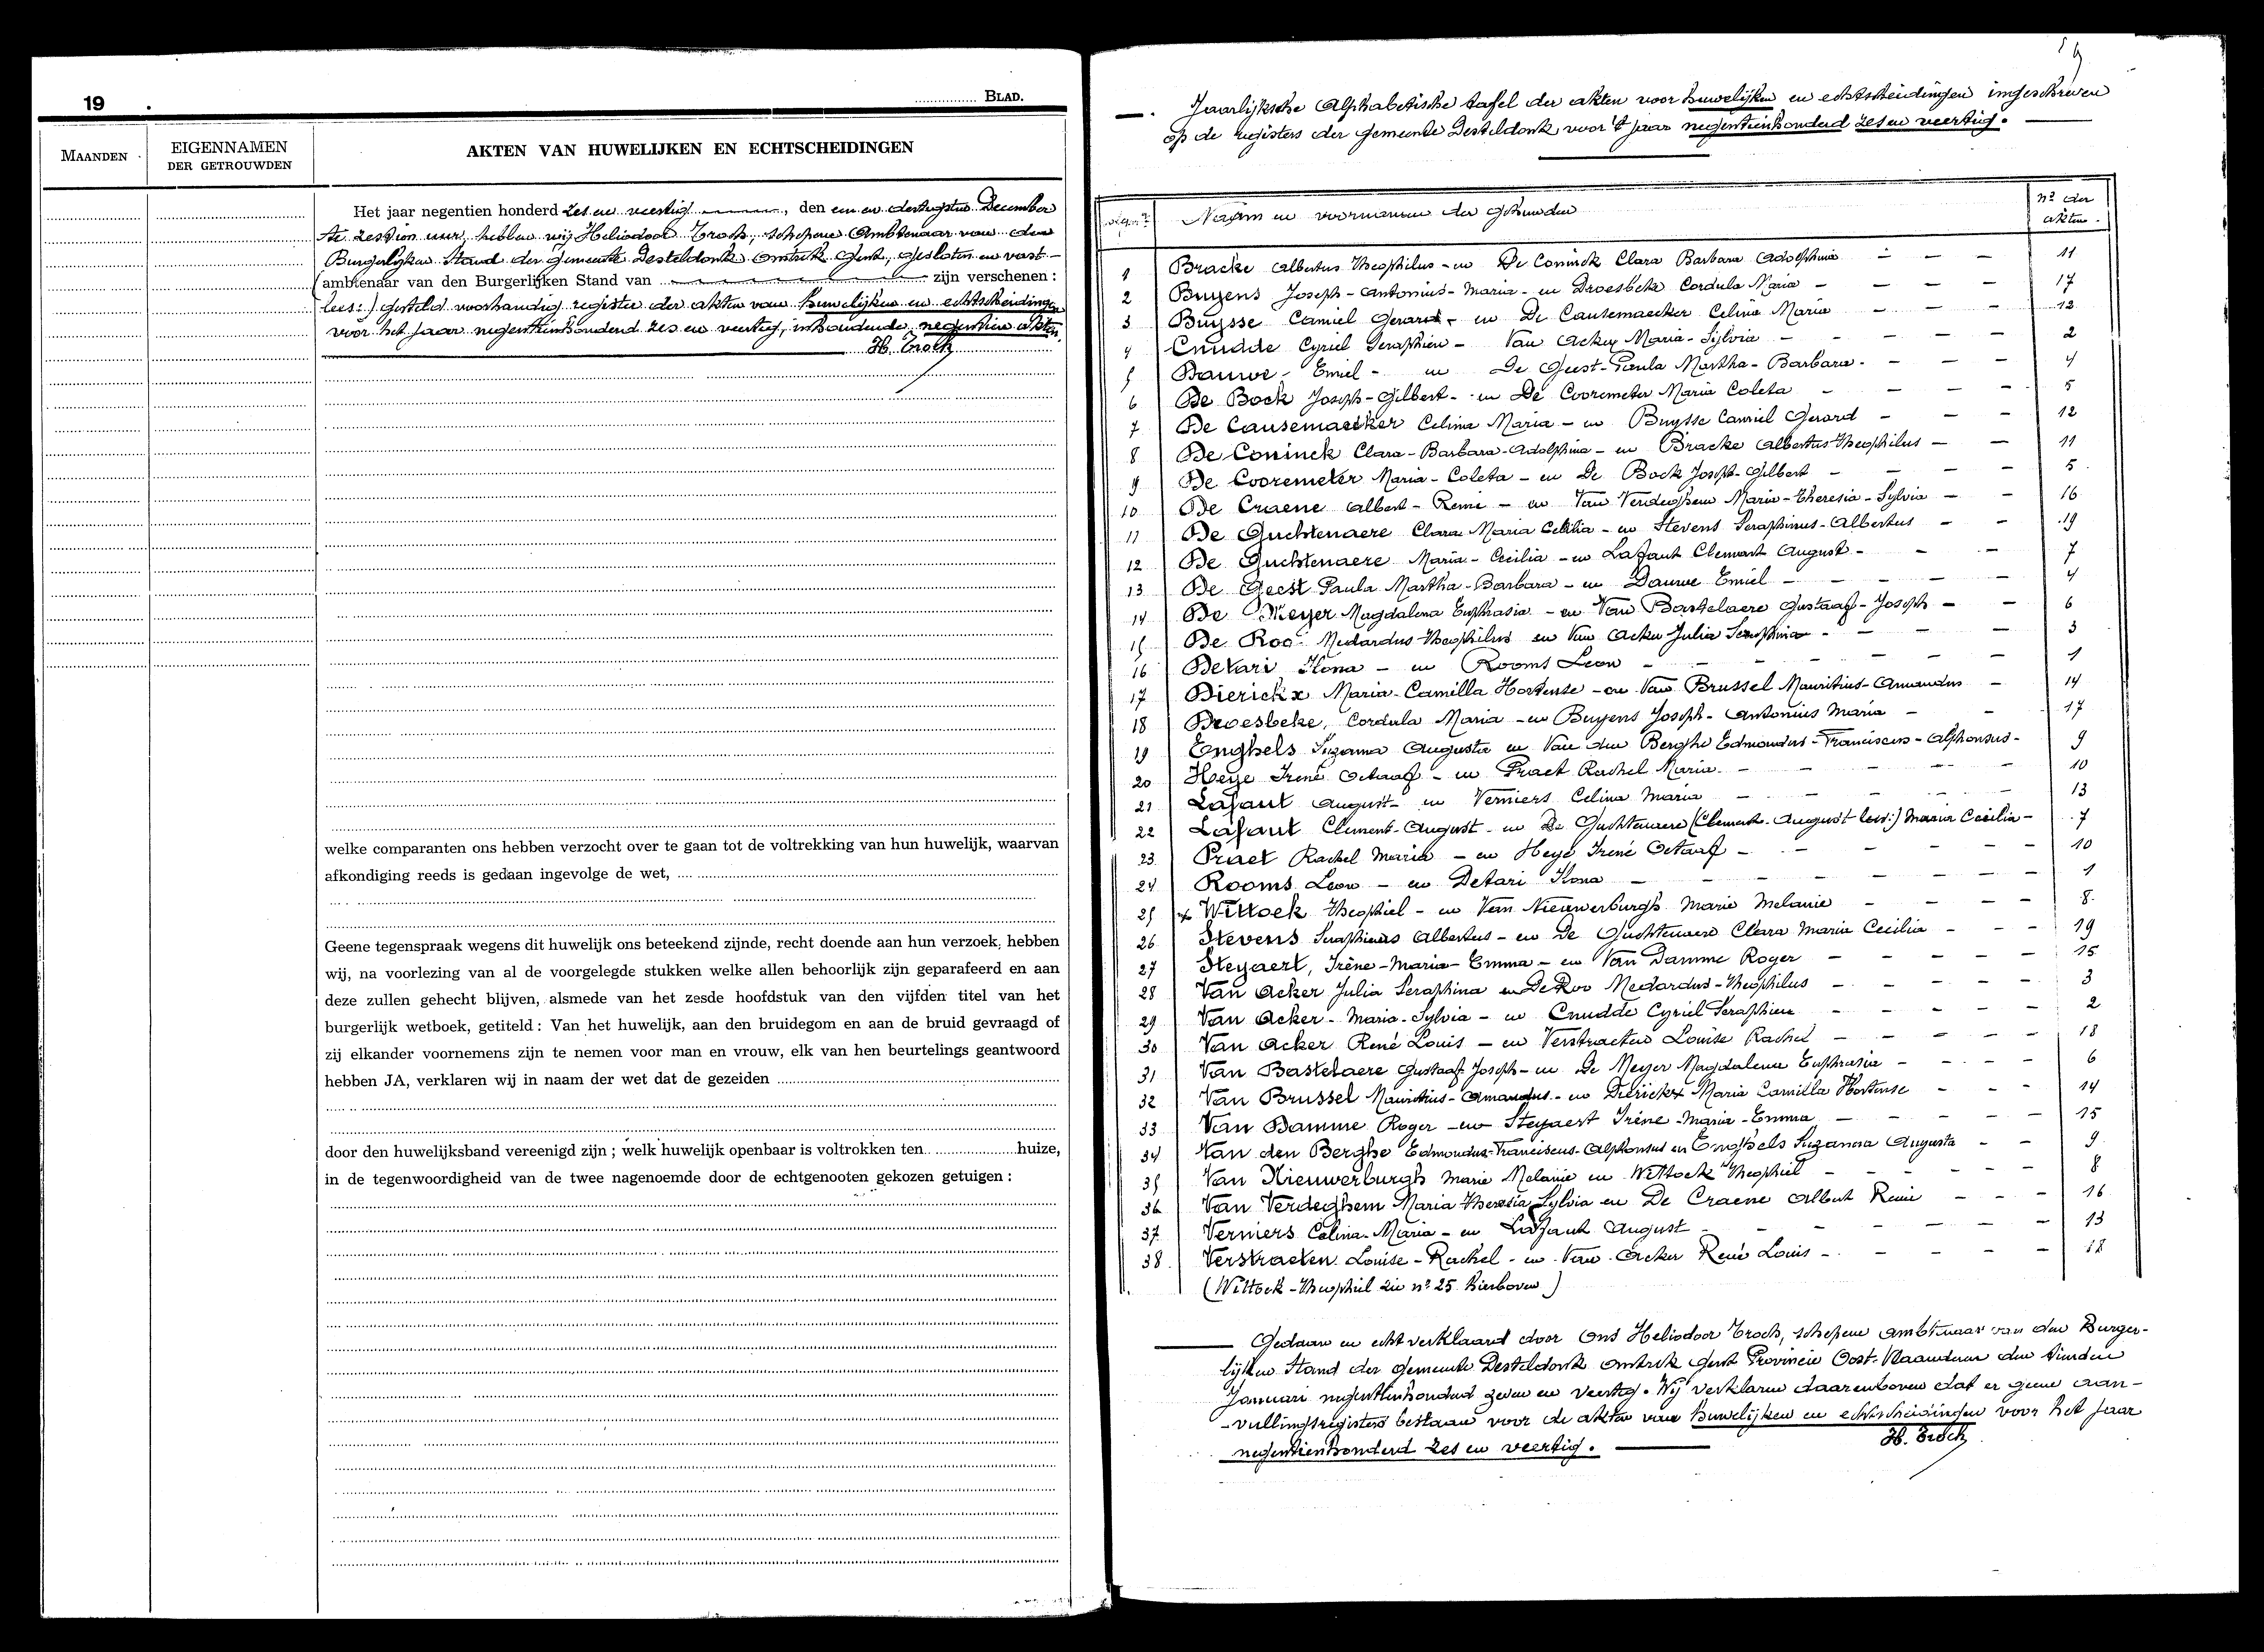 19 .
BLAD.
MAANDEN
EIGENNAMEN
DER GETROUWDEN
AKTEN VAN HUWELIJKEN EN ECHTSCHEIDINGEN
Het jaar negentien honderd zes en veertig, den een en dertigsten December
te zestien uur, hebben wij Heliodoor Troch, schepene Ambtenaar van den
Burgerlijken Stand der Gemeente Desteldonk omtrek Gent, gesloten en vast-
(ambtenaar van den Burgerlijken Stand van zijn verschenen :
lees:) gesteld voorhandig register der akten van huwelijken en echtscheidingen
voor het jaar negentienhonderd zes en veertig, inhoudende negentien akten.
H. Troch
welke comparanten ons hebben verzocht over te gaan tot de voltrekking van hun huwelijk, waarvan
afkondiging reeds is gedaan ingevolge de wet,
Geene tegenspraak wegens dit huwelijk ons beteekend zijnde, recht doende aan hun verzoek, hebben
wij, na voorlezing van al de voorgelegde stukken welke allen behoorlijk zijn geparafeerd en aan
deze zullen gehecht blijven, alsmede van het zesde hoofdstuk van den vijfden titel van het
burgerlijk wetboek, getiteld : Van het huwelijk, aan den bruidegom en aan de bruid gevraagd of
zij elkander voornemens zijn te nemen voor man en vrouw, elk van hen beurtelings geantwoord
hebben JA, verklaren wij in naam der wet dat de gezeiden
door den huwelijksband vereenigd zijn ; welk huwelijk openbaar is voltrokken ten huize,
in de tegenwoordigheid van de twee nagenoemde door de echtgenooten gekozen getuigen :
Jaarlijksche Alphabetische tafel der akten voor huwelijken en echtscheidingen ingeschreven
op de registers der gemeente Desteldonk voor 't jaar negentienhonderd zes en veertig.
Naam en voornamen der gehuwden nº der akten.
1 Bracke Albertus Theophilus - en De Coninck Clara Barbara Adolphina - - - 11
2 Buyens Joseph - Antonius - Maria - en Droesbeke Cordula Maria - - - - 17
3 Buysse Camiel Gerard - en De Causemaecker Celina Maria - - - 12
4 Cnudde Cyriel Seraphien - Van Acker Maria - Sylvia - - - - - 2
5 Dauwe - Emiel - en De Geest - Paula Martha - Barbara - - - - 4
6 De Bock Joseph - Gilbert - en De Cooremeter Maria Coleta - - - - 5
7 De Causemaecker Celina Maria - en Buysse Camiel Gerard - - - 12
8 De Coninck Clara - Barbara - Adolphina - en Bracke Albertus Theophilus - - 11
9 De Cooremeter Maria - Coleta - en De Bock Joseph - Gilbert - - - - 5
10 De Craene Albert - Remi - en Van Verdeghem Maria - Theresia - Sylvia - - 16
11 De Guchtenaere Clara Maria Cecilia - en Stevens Seraphinus - Albertus - - 19
12 De Guchtenaere Maria - Cecilia - en Lafaut Clement August - - - 7
13 De Geest Paula Martha - Barbara - en Dauwe Emiel - - - - - 4
14 De Meyer Magdalena Euphrasia - en Van Bastelaere Gustaaf - Joseph - - 6
15 De Roo - Medardus Theophilus en Van Acker Julia Seraphina - - - - 3
16 Detari Ilona - en Rooms Leon - - - - - - 1
17 Dierickx Maria - Camilla Hortense - en Van Brussel Mauritius - Amandus - 14
18 Droesbeke, Cordula Maria - en Buyens Joseph - Antonius Maria - - 17
19 Enghels Suzanna Augusta en Van den Berghe Edmondus - Franciscus - Alphonsus - 9
20 Heye Irené Octaaf - en Praet Rachel Maria - - - - - 10
21 Lafaut August - en Verniers Celina Maria - - - - - 13
22 Lafaut Clement - August - en De Guchtenaere (Clement - August lees:) Maria Cecilia - 7
23 Praet Rachel Maria - en Heye Irené Octaaf - - - - - - 10
24 Rooms Leon - en Detari Ilona - - - - - - - 1
25 x Wittock Theophiel - en Van Nieuwerburgh Marie Melanie - - - - 8
26 Stevens Seraphinus Albertus - en De Guchtenaere Clara Maria Cecilia - - - 19
27 Steyaert, Irène - Maria - Emma - en Van Damme Roger - - - - - 15
28 Van Acker Julia Seraphina en De Roo Medardus - Theophilus - - - - - 3
29 Van Acker - Maria - Sylvia - en Cnudde Cyriel Seraphien - - - - - 2
30 Van Acker René Louis - en Verstraeten Louise Rachel - - - - - 18
31 Van Bastelaere Gustaaf Joseph - en De Meyer Magdalena Euphrasia - - - - 6
32 Van Brussel Mauritius - Amandus - en Dierickx Maria Camilla Hortense - - - 14
33 Van Damme Roger - en Steyaert Irène - Maria - Emma - - - - - 15
34 Van den Berghe Edmondus - Franciscus - Alphonsus en Enghels Suzanna Augusta - - 9
35 Van Nieuwerburgh Marie Melanie en Wittock Theophiel - - - - - 8
36 Van Verdeghem Maria Theresia Sylvia en De Craene Albert Remi - - - 16
37 Verniers Celina - Maria - en Lafaut August - - - - - - 13
38 Verstraeten Louise - Rachel - en Van Acker René Louis - - - - - 18
(Wittock - Theophiel zie nº 25 hierboven)
Gedaan en echt verklaard door Ons Heliodoor Troch, schepene ambtenaar van den Burger-
lijken Stand der gemeente Desteldonk omtrek Gent Provincie Oost-Vlaanderen den tienden
Januari negentienhonderd zeven en veertig. Wij verklaren daarenboven dat er geene aan-
-vullingsregisters bestaan voor de akten van huwelijken en echtscheidingen voor het jaar
negentienhonderd zes en veertig.
H. Troch